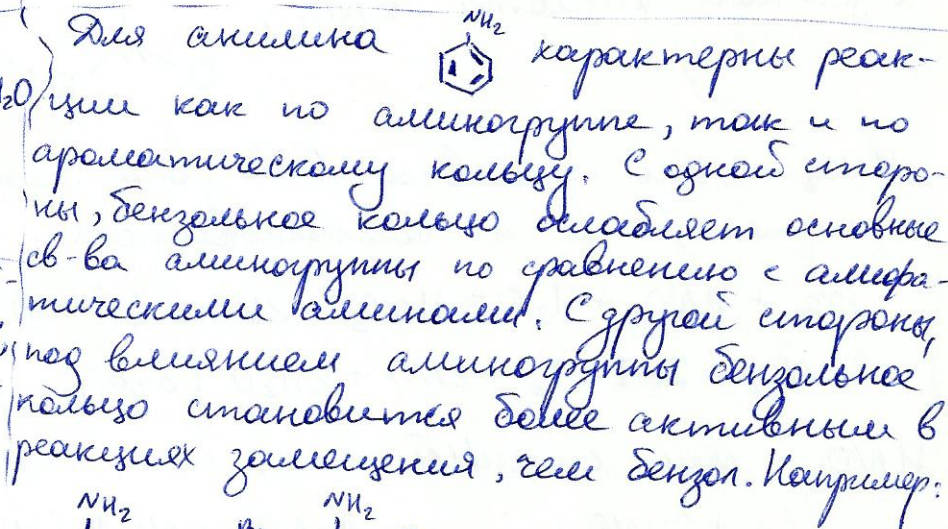 NH₂
Для анилина характерны реак-
ции как по аминогруппе, так и по
ароматическому кольцу. С одной сторо-
ны, бензольное кольцо ослабляет основные
св-ва аминогруппы по сравнению с алифа-
тическими аминами. С другой стороны,
под влиянием аминогруппы бензольное
кольцо становится более активным в
реакциях замещения, чем бензол. Например:
NH₂ NH₂